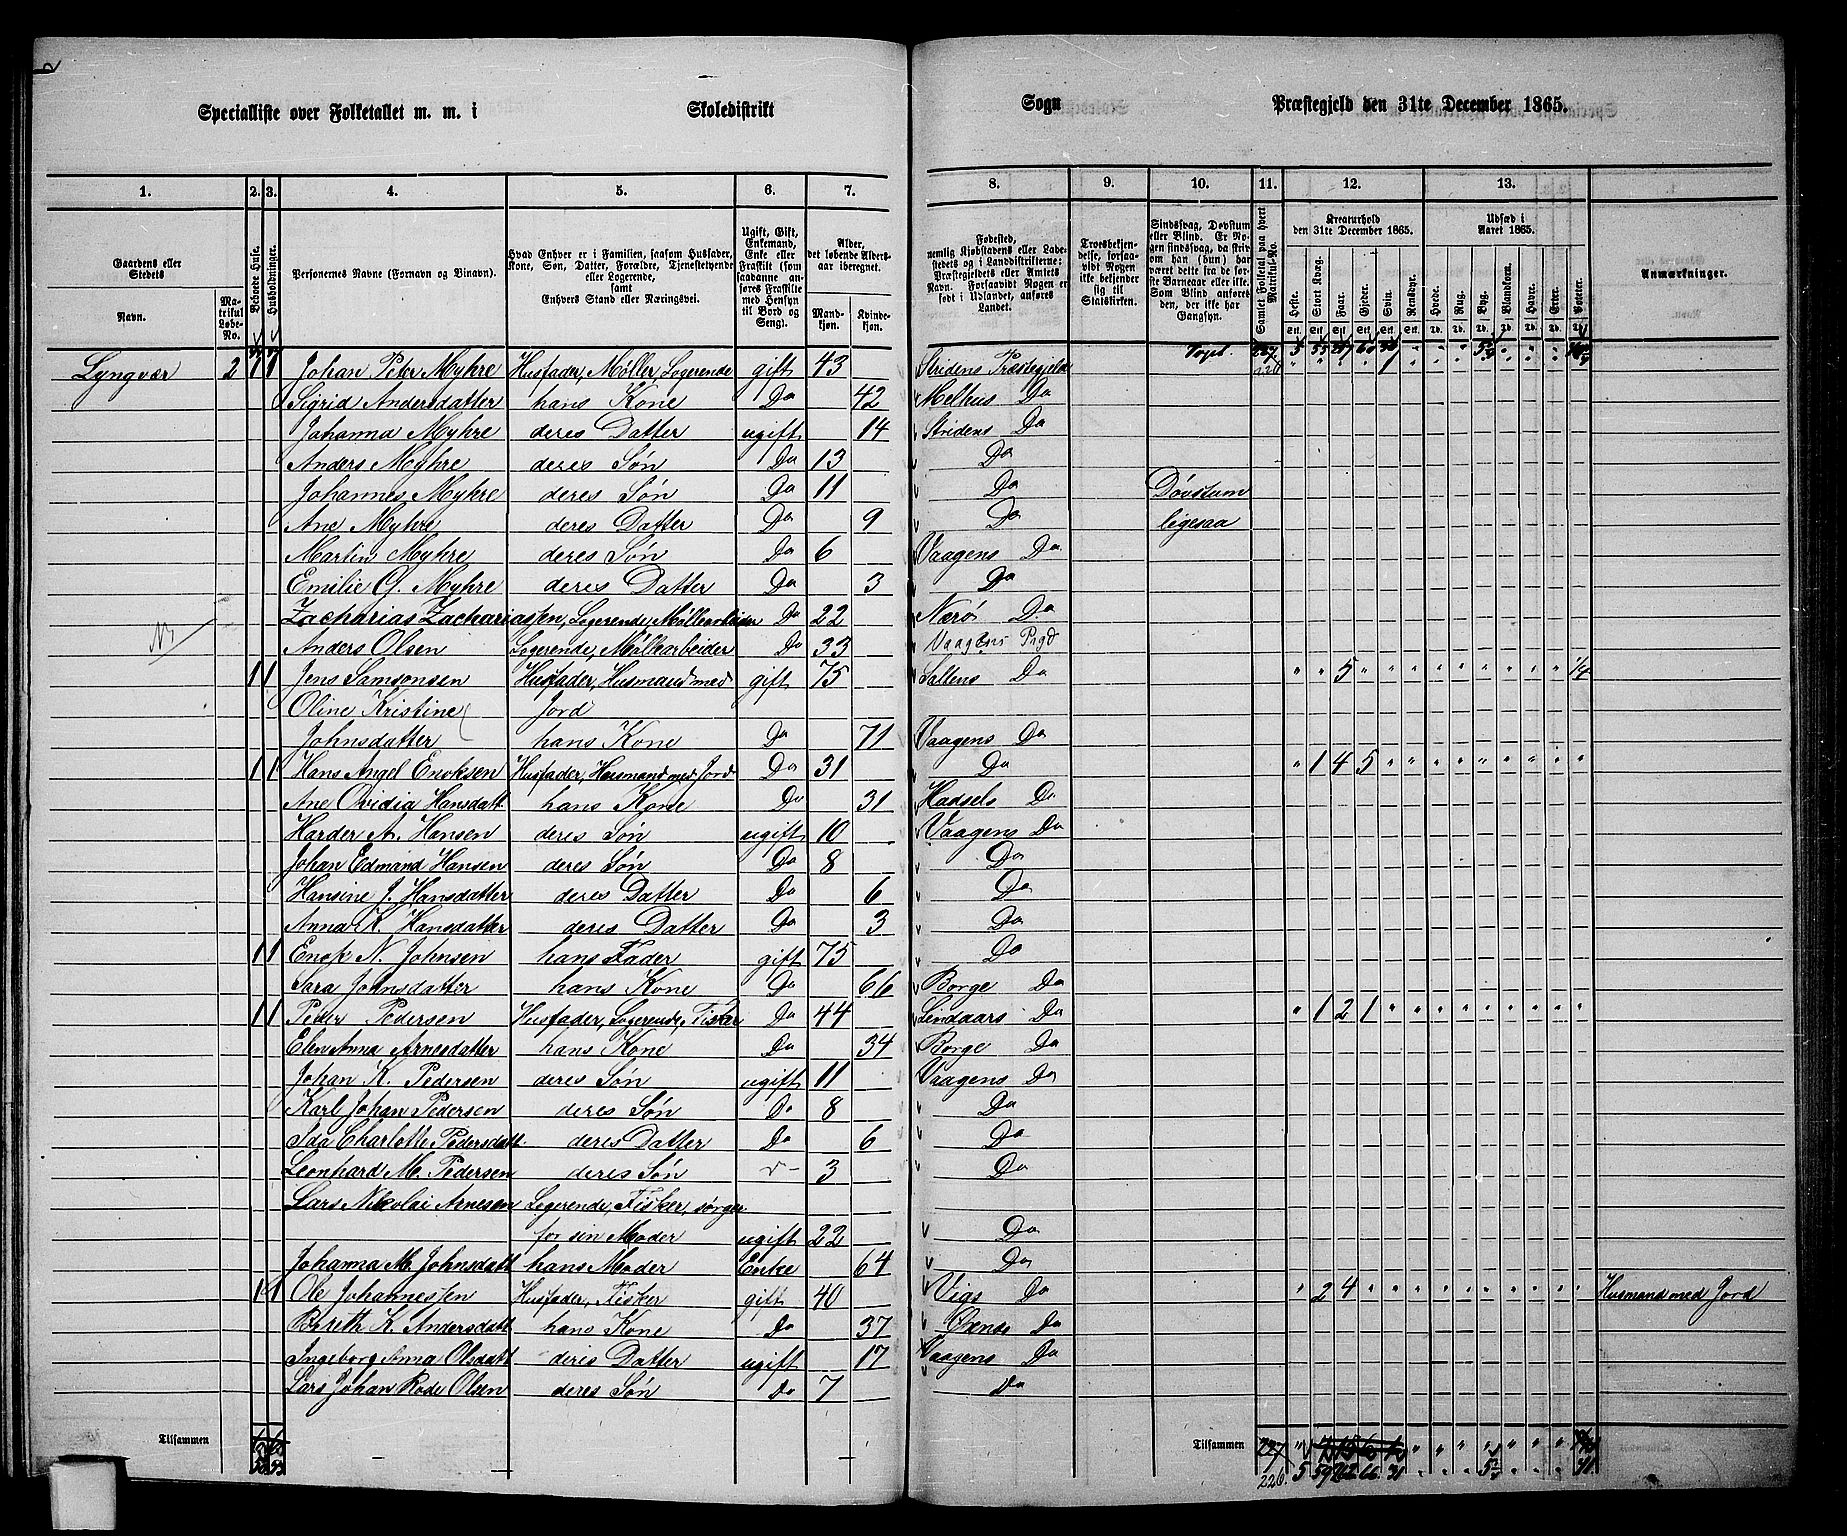 Specialliste over Folketallet m. m. i Skoledistrikt Sogn Præstegjeld den 31te December 1865.
1. 2. 3. 4. 5. 6. 7. 8. 9. 10. 11. 12. 13.
Gaardens eller Stedets Navn.
Matrikul Løbe-No.
Beboede Huse.
Husholdninger.
Personernes Navne (Fornavn og Binavn).
Hvad Enhver er i Familien, saasom Husfader, Kone, Søn, Datter, Forældre, Tjenestetyende eller Logerende, samt Enhvers Stand eller Næringsvei.
Ugift, Gift, Enkemand, Enke eller Fraskilt (som saadanne anføres Fraskilte med Hensyn til Bord og Seng).
Alder, det løbende Aldersaar iberegnet.
Mandkjøn. Kvindekjøn.
Fødested, nemlig Kjøbstadens eller Ladestedets og i Landdistrikterne: Præstegjeldets eller Amtets Navn. Forsaavidt Nogen er født i Udlandet, anføres Landet.
Troesbekjendelse, forsaavidt Nogen ikke bekjender sig til Statskirken.
Sindssvag, Døvstum eller Blind. Er Nogen sindssvag, da skrives om han (hun) har været dette fra de første Barneaar eller ikke. Som Blind anføres den, der ikke har Gangsyn.
Samlet Folketal paa hvert Matrikul-No.
Kreaturhold den 31te December 1865.
Heste. Stort Kvæg. Faar. Gjeder. Svin. Rensdyr.
Udsæd i Aaret 1865.
Hvede. Rug. Byg. Blandkorn. Havre. Erter. Poteter.
Anmærkninger.
Lyngvær 2 1 1 Johan Peter Myhre Husfader, Møller, Logerende gift 43 Stridens Præstegjeld
Sigrid Andersdatter hans Kone Do 42 Melhus Do
Johanna Myhre deres Datter ugift 14 Stridens Do
Anders Myhre deres Søn Do 13 Do
Johannes Myhre deres Søn Do 11 Do Døvstum
Ane Myhre deres Datter Do 9 Do ligesaa
Martin Myhre deres Søn Do 6 Vaagens Do
Emilie G. Myhre deres Datter Do 3 Do
Zacharias Zachariassen, Logerende, Møllearbeider Do 22 Nærø Do
Anders Olsen Logerende, Møllearbeider Do 33 Vaagens Prgd
1 1 Jens Samsonsen Husfader, Husmand med gift 75 Saltens Do " " 5 " " " " " " " " " 1/4
Oline Kristine Jord
Johnsdatter hans Kone Do 71 Vaagens Do
1 1 Hans Angel Enoksen Husfader, Husmand med Jord Do 31 Do " 1 4 5 " " " " " " " " "
Ane Ovidia Hansdatt. hans Kone Do 31 Hadsels Do
Harder A. Hansen deres Søn ugift 10 Vaagens Do
Johan Edmand Hansen deres Søn Do 8 Do
Hansine J. Hansdatter deres Datter Do 6 Do
Anna K. Hansdatter deres Datter Do 3 Do
1 1 Enok N. Johnsen hans Fader gift 75 Do
Sara Johnsdatter hans Kone Do 66 Borge Do
1 1 Peder Pedersen Husfader, Logerende, Fisker Do 44 Lindaars Do " 1 2 1 " " " " " " " " "
Elen Anna Arnesdatter hans Kone Do 34 Borge Do
Johan K. Pedersen deres Søn ugift 11 Vaagens Do
Karl Johan Pedersen deres Søn Do 8 Do
Ida Charlotte Pedersdatt. deres Datter Do 6 Do
Leonhard M. Pedersen deres Søn 3 Do
Lars Nikolai Arnesen Logerende, Fisker, sørger
for sin Moder ugift 22 Do
Johanna M. Johnsdatt hans Moder Enke 64 Do
1 1 Ole Johannessen Husfader, Fisker gift 40 Vigs Do " 2 4 " " " " " " " " " " Husmand med Jord
Bereth K. Andersdatt hans Kone Do 37 Do
Ingeborg Anna Olsdatt deres Datter ugift 17 Vaagens Do
Lars Johan Rode Olsen deres Søn Do 7 Do
Tilsammen Tilsammen 227
226 5 59 262 66 31 41